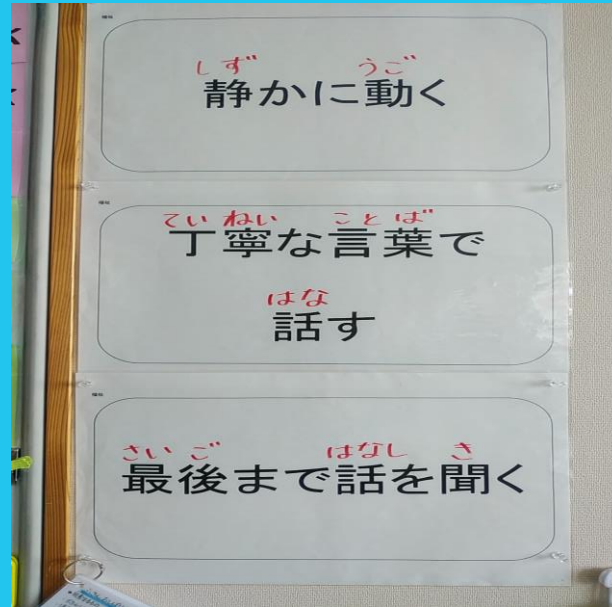 しず うご
静かに動く
ていねい ことば
丁寧な言葉で
はな
話す
さいご はなし き
最後まで話を聞く